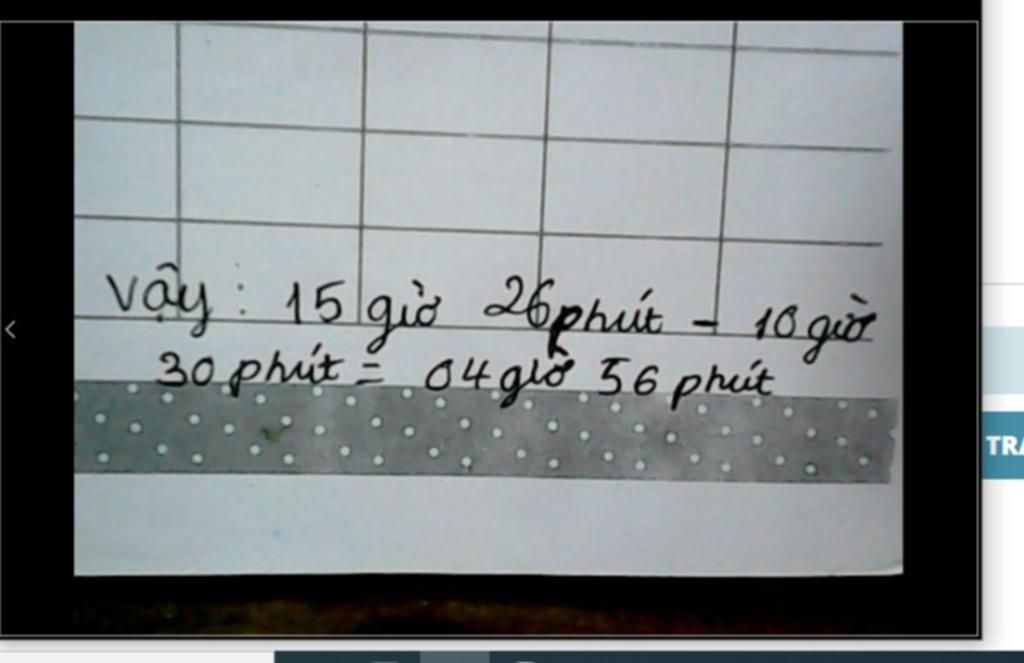 Vậy: 15 giờ 26 phút - 10 giờ
30 phút = 04 giờ 56 phút